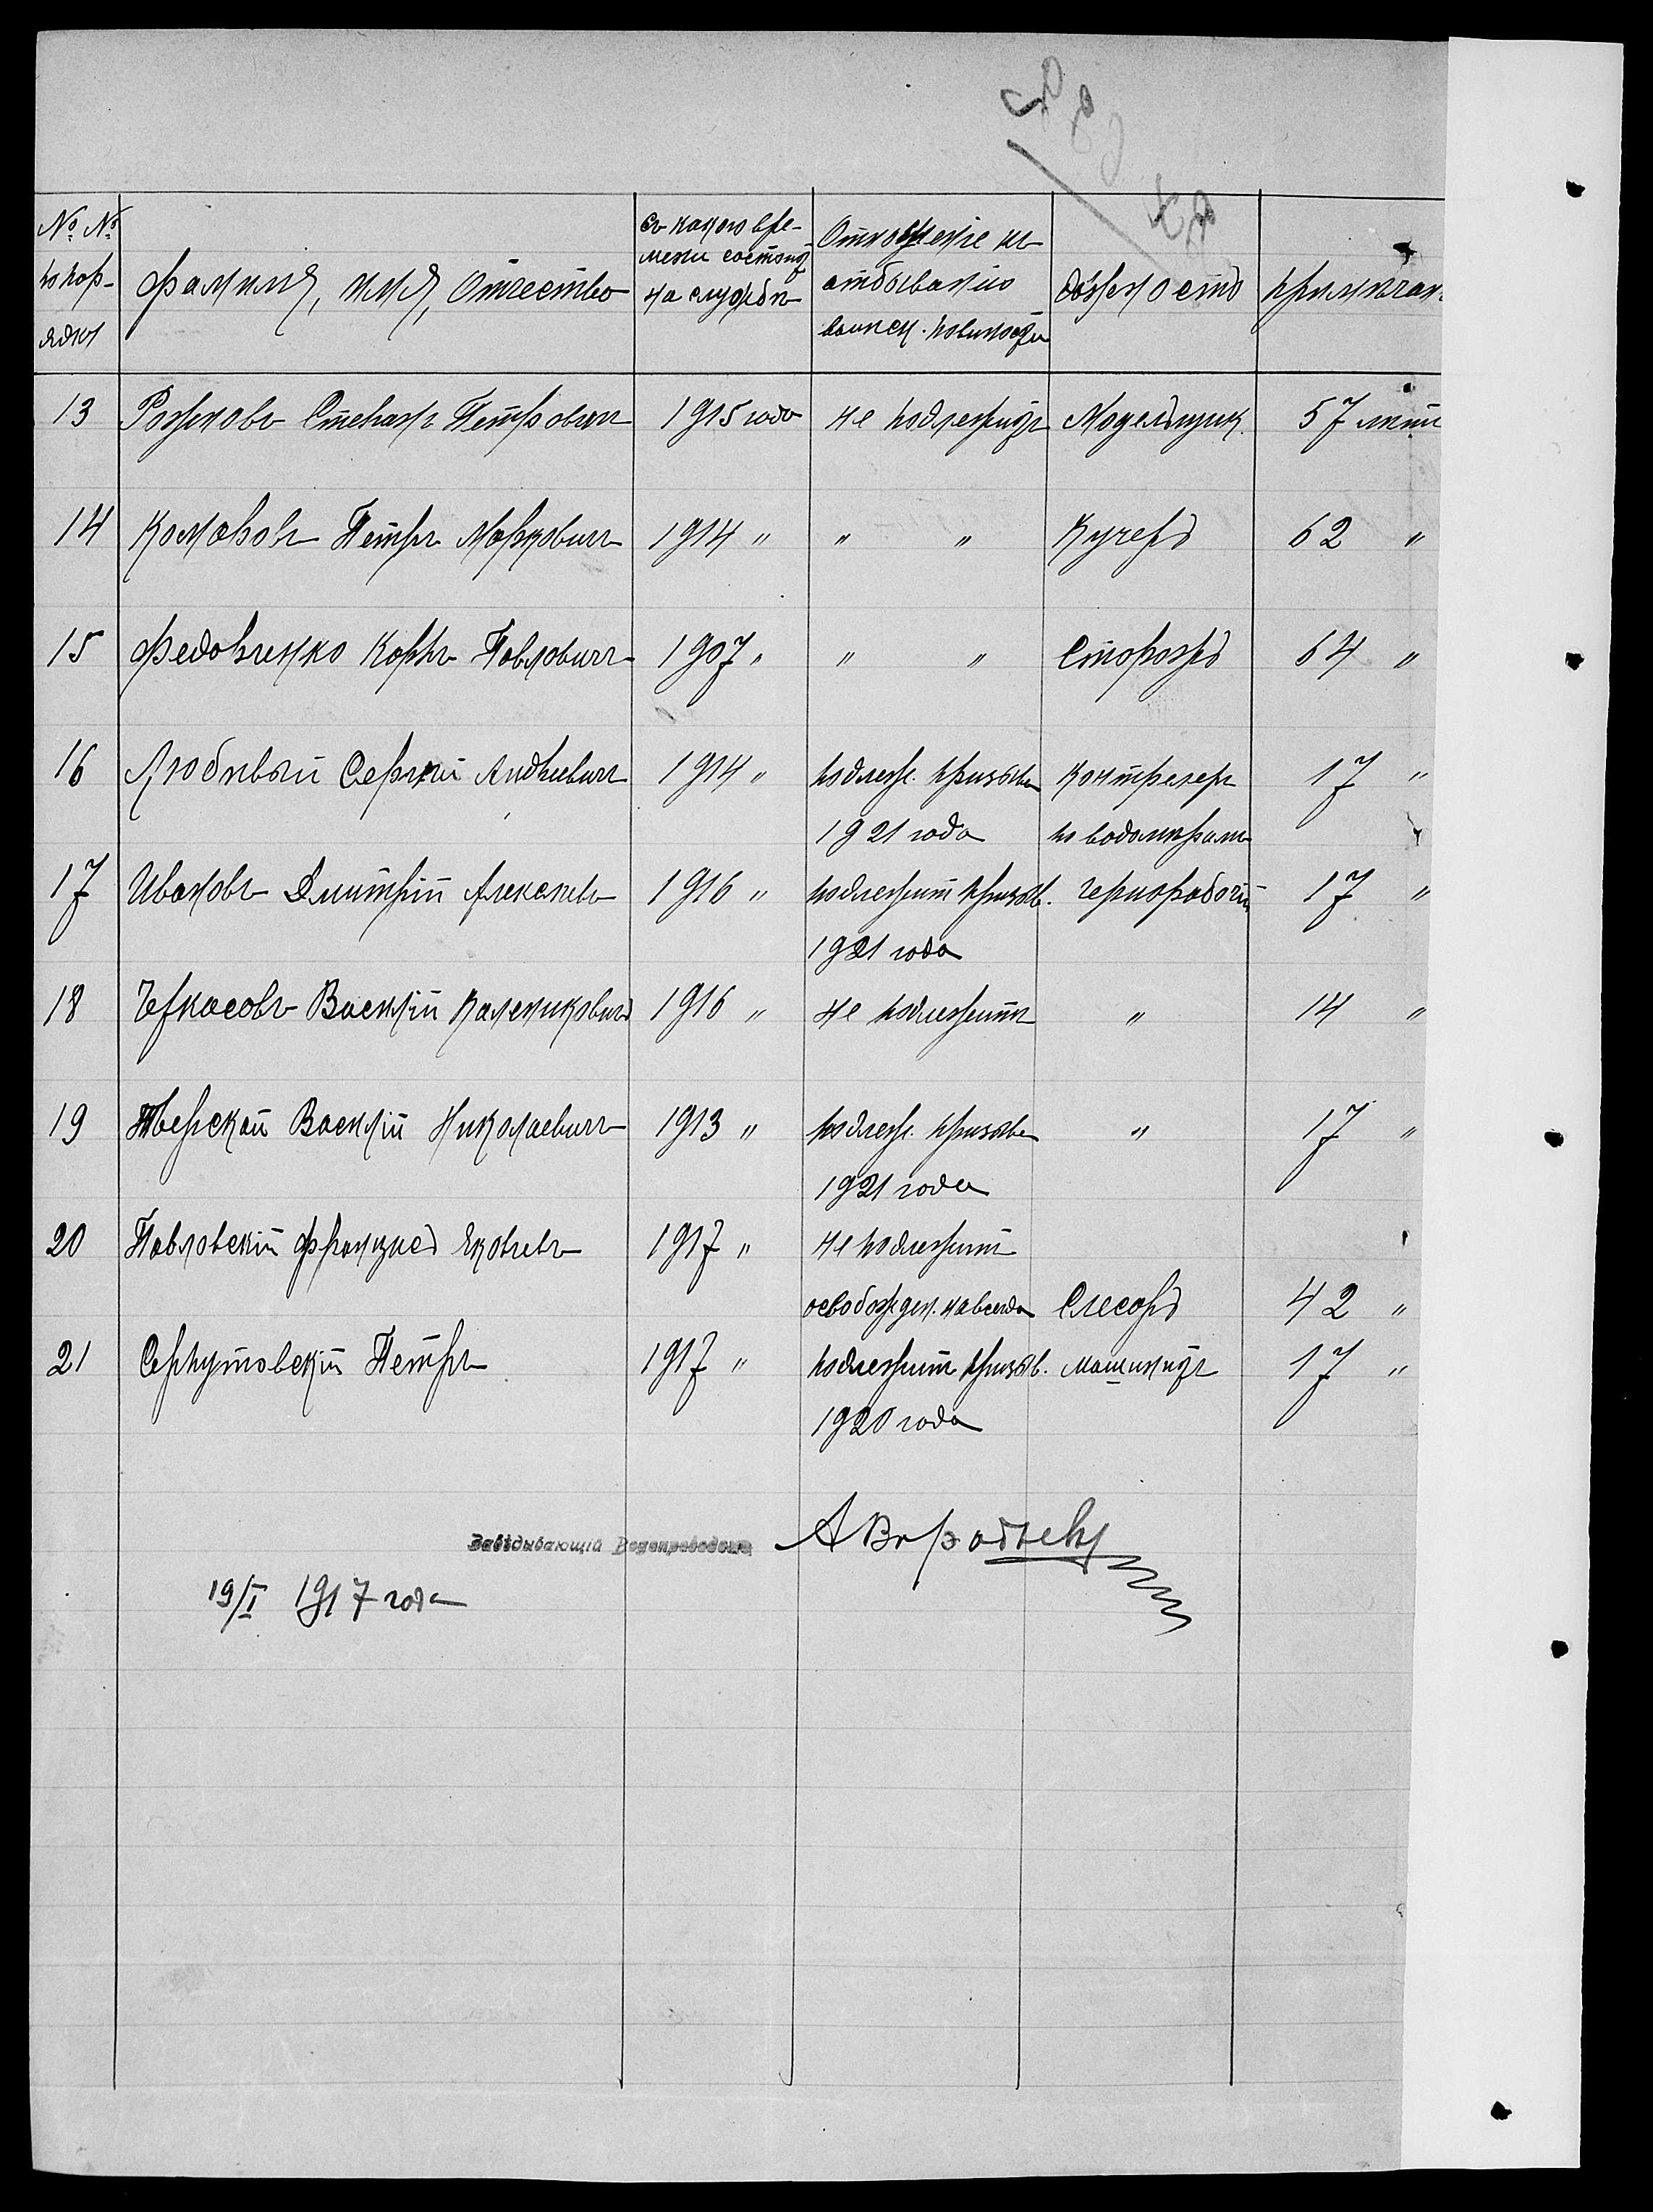 № № по пор-ядку | Фамилія, имя, Отчество | Съ какого вре-мени состоитъ на службѣ | Отношеніе къ отбыванію воинск. повиности | должность | Примѣчан
13 Рожновъ Степанъ Петровичъ 1915 года не подлежитъ Модельщик. 57 лѣтъ
14 Комаровъ Петръ Марковичъ 1914 " " " Кучеръ 62 "
15 Федорченко Карпъ Павловичъ 1907 " " " Сторожъ 64 "
16 Любивый Сергѣй Андреевичъ 1914 " подлеж. призыва Контрелеръ 17 "
1921 года по водомѣрамъ
17 Ивановъ Дмитрій Алексѣевъ 1916 " подлежит призыв. чернорабочій 17 "
1921 года
18 Черкасовъ Василій Калениковичъ 1916 " не подлежитъ " 14 "
19 Тверской Василій Николаевичъ 1913 " подлеж. призыва " 17 "
1921 года
20 Павловскій Францъ Яковлевъ 1917 " не подлежит
освобожден. навсегда Слесаръ 42 "
21 Серпутовскій Петръ 1917 " подлежит призыв. машинистъ 17 "
1920 года
Завѣдывающій Водопроводомъ
19/I 1917 года